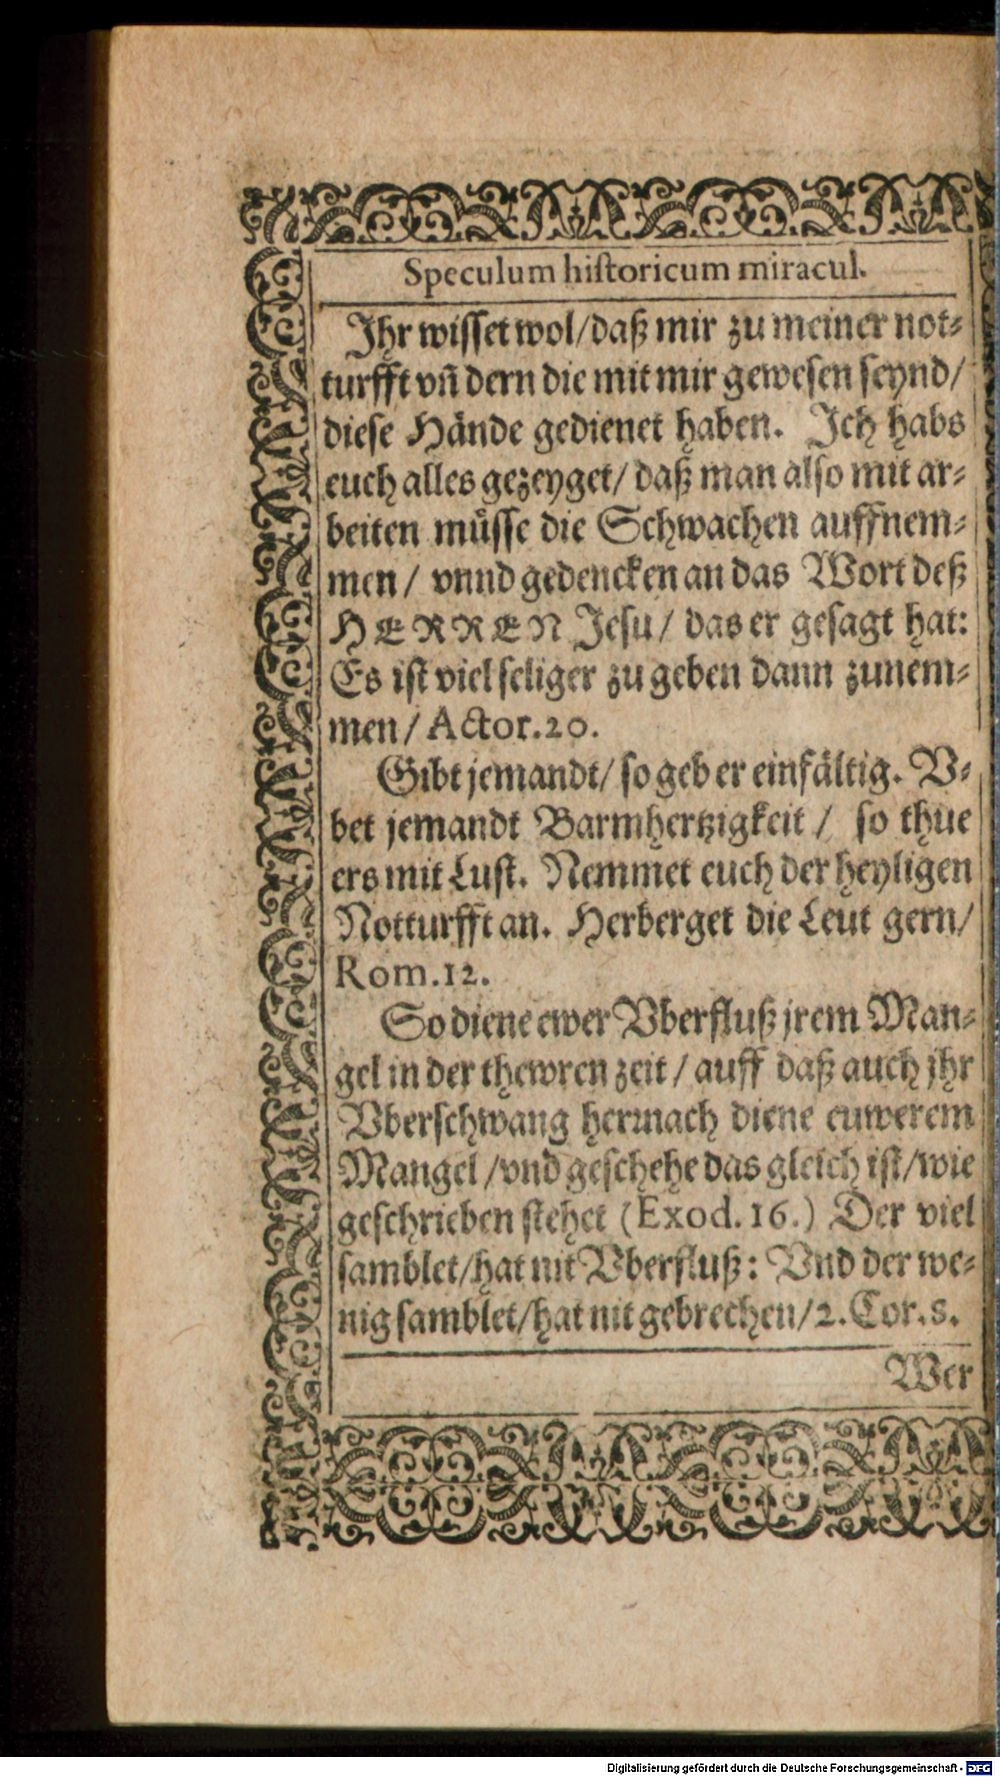 Speculum historicum miracul.
Ihr wisset wol/daß mir zu meiner not-
turfft vñ dern die mit mir gewesen seynd/
diese Hände gedienet haben. Ich habs
euch alles gezeyget/ daß man also mit ar-
beiten müsse die Schwachen auffnem-
men/ vnnd gedencken an das Wort deß
HERREN Jesu/ das er gesagt hat:
Es ist viel seliger zu geben dann zunem-
men/ Actor.20.
Gibt jemandt/ so geb er einfältig. V-
bet jemandt Barmhertzigkeit/ so thue
ers mit Lust. Nemmet euch der heyligen
Notturfft an. Herberget die Leut gern/
Rom.12.
So diene ewer Vberfluß jrem Man-
gel in der thewren zeit/ auff daß auch jhr
Vberschwang hernach diene euwerem
Mangel/vnd geschehe das gleich ist/wie
geschrieben stehet (Exod.16.) Der viel
samblet/hat nit Vberfluß: Vnd der we-
nig samblet/hat nit gebrechen/2.Cor.8.
Wer
Digitalisierung gefördert durch die Deutsche Forschungsgemeinschaft - DFG